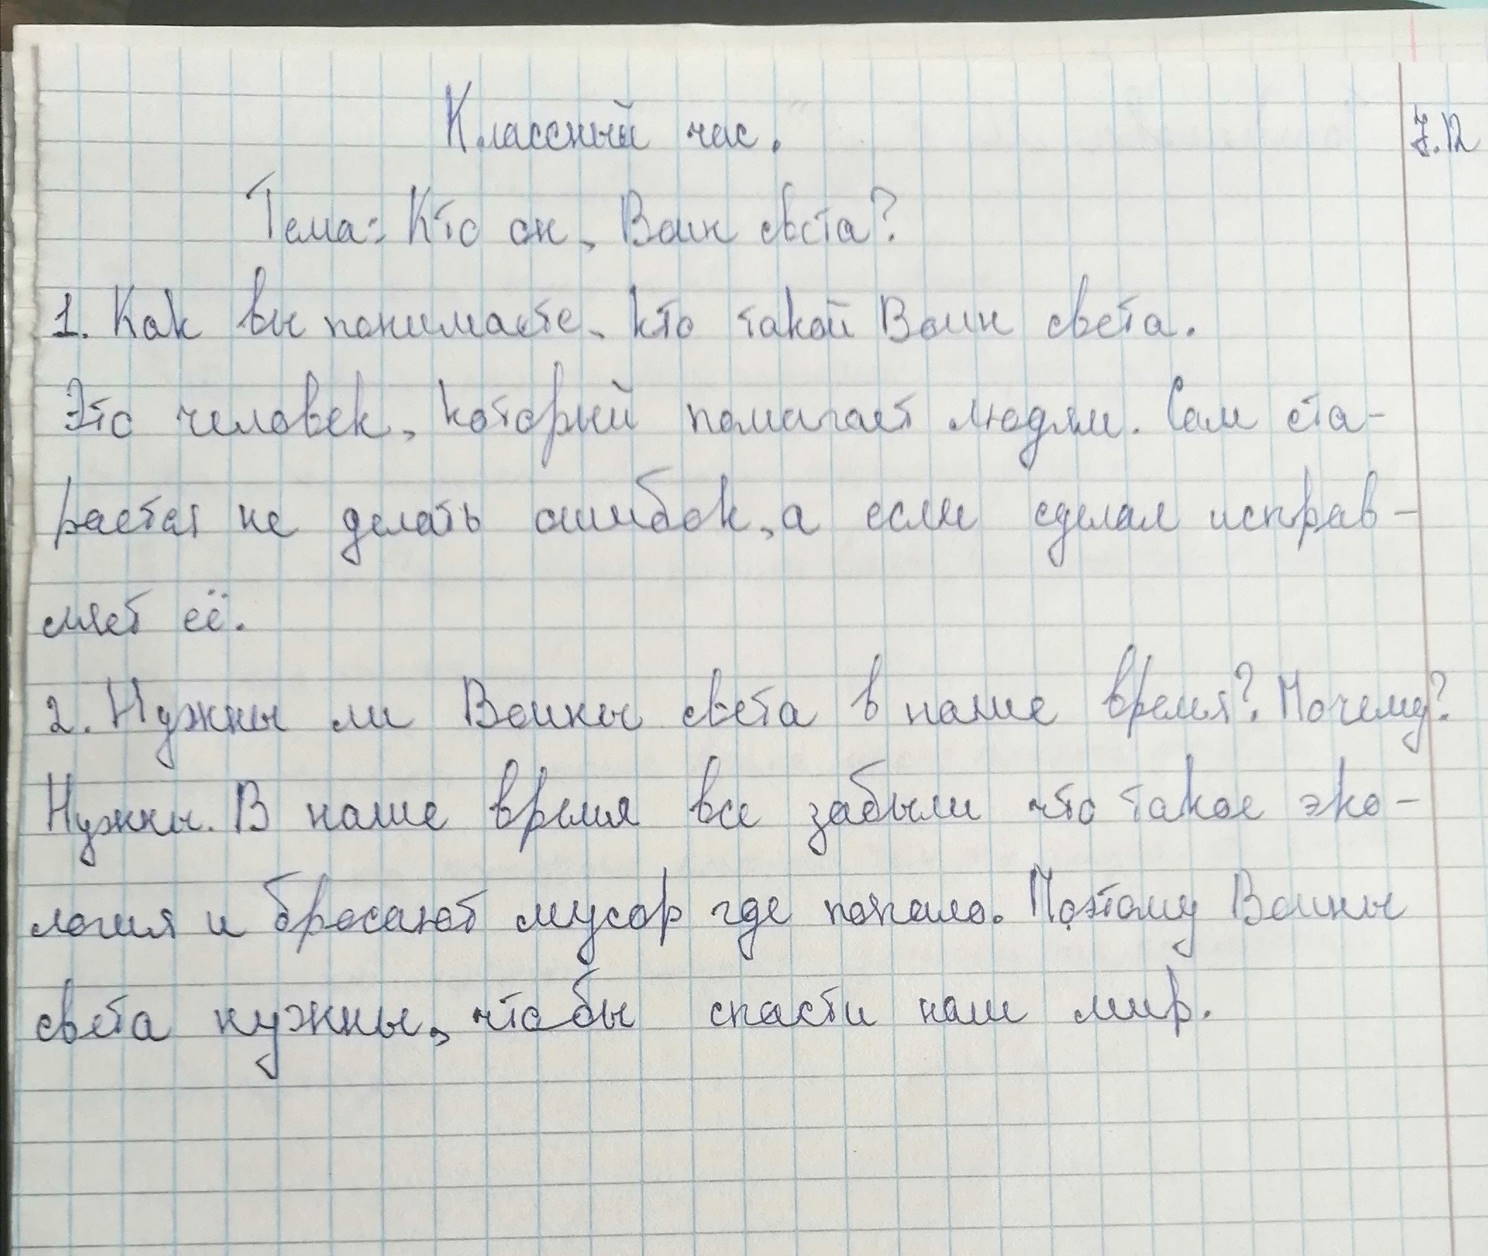 Классный час.
7.12
Тема: Кто он, Воин света?
1. Как вы понимаете, кто такой Воин света.
Это человек, который помагает людям. Сам ста-
рается не делать ошибок, а если сделал исправ-
ляет её.
2. Нужны ли Воины света в наше время? Почему?
Нужны. В наше время все забыли что такое эко-
логия и бросают мусор где попало. Поэтому Воины
света нужны, чтобы спасти наш мир.